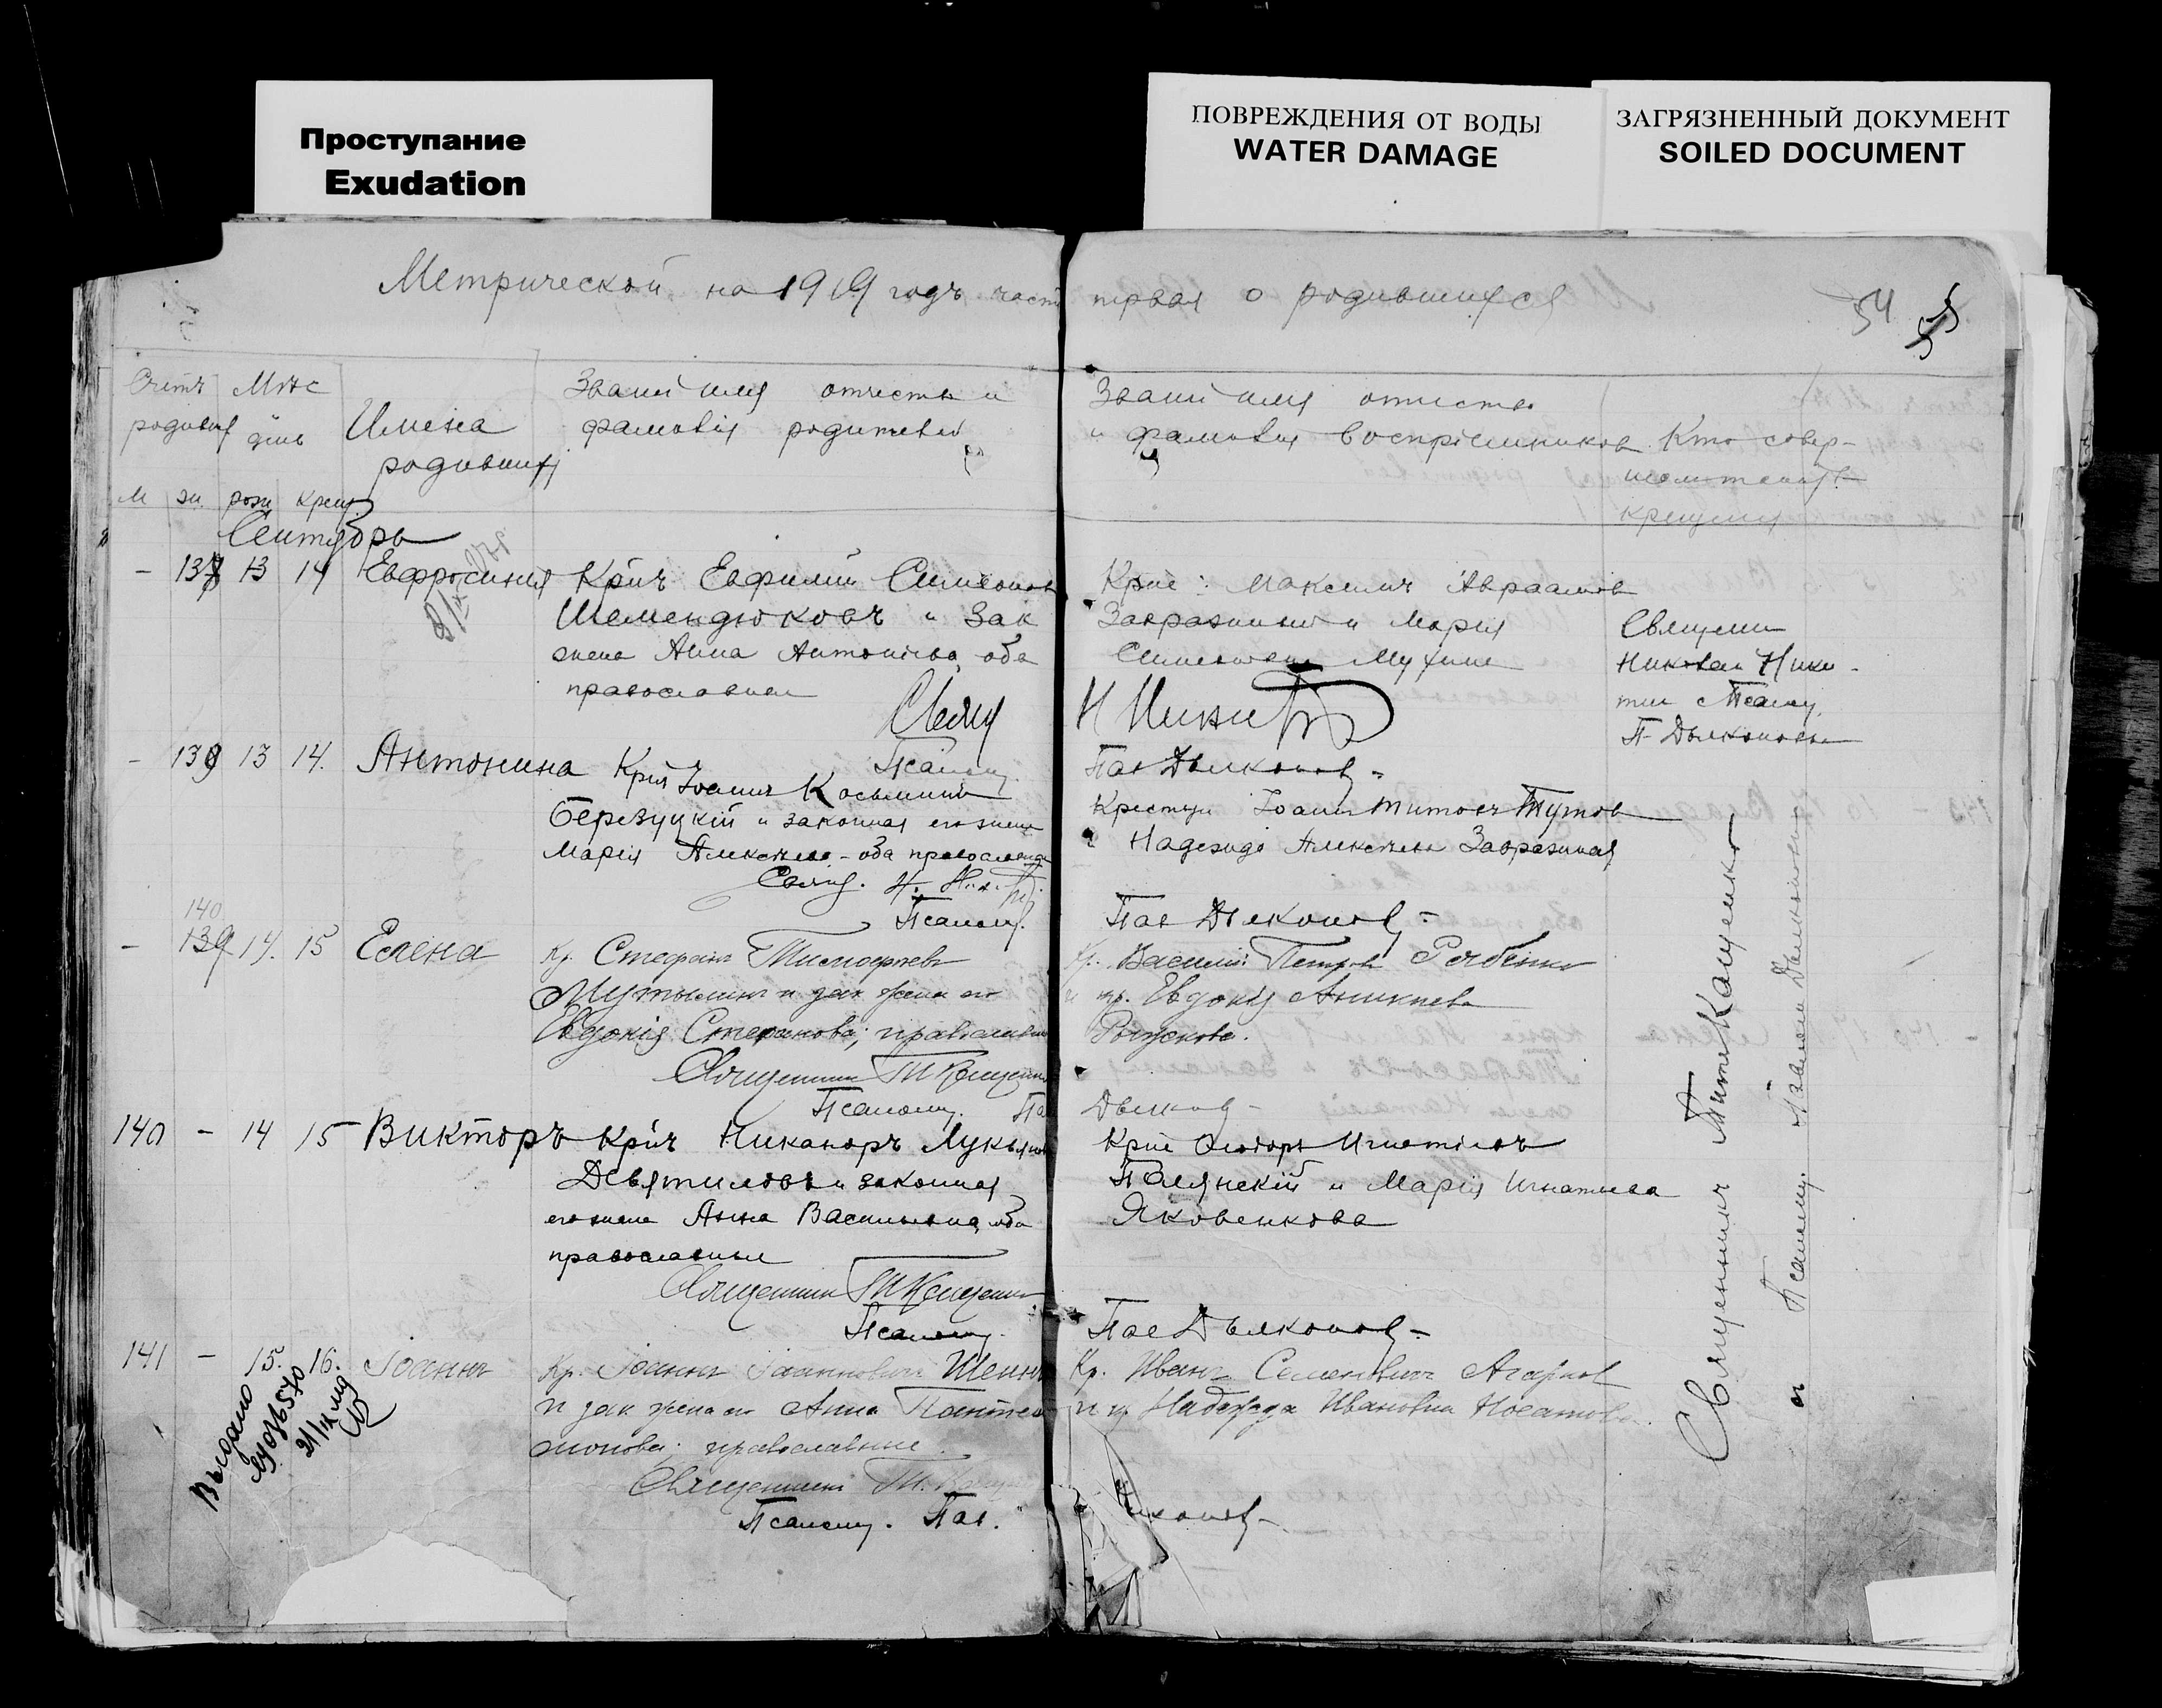 Проступание
Exudation
ПОВРЕЖДЕНИЯ ОТ ВОДЫ
WATER DAMAGE
ЗАГРЯЗНЕННЫЙ ДОКУМЕНТ
SOILED DOCUMENT
Метрической на 1919 годъ часть первая о родившихся
54
Счетъ
родивш
М ж.
Мѣс
день
рожд крещ
Имена
родивших
Званий имя отчество и
фамилия родителей
Званий имя отчество
и фамилия воспріемников
Кто совер-
крещения
Сентябрь
- 137 13 14 Евфросиния
Кр҃нъ Евфимий Симеонов
Шемендюковъ и Зак
жена Анна Антониева оба
православныи
Свящ
Псаломщ.
Кр҃не: Максимъ Авраамов
Завразжный и Мария
Мухина
Н Никит
Пав Дьяконов -
Священ
Николай Ники-
тин Псалом
П. Дьяконовъ
- 139 13 14. Антонина
Кр҃нъ Іоаннъ Косьминъ
Березуцкій и законная его жена
Марія Алексѣева - оба православные
Свящ. Н. Ник
Псаломщ.
Крестьян Іоаннъ Титовъ Тутов
и Надежда Алексѣева Завразжная
Пав Дьяконов -
140
- 139 14. 15 Елена
Кр. Стефанъ Тимофеевъ
Мутылинъ и зак жена его
Евдокія Стефанова; православные
Священник Т Кащенко
Псаломщ. Па
Кр. Василий Петров Рябенко
и кр. Евдокія Аникиева
Рыжкова.
Дьяков -
140 - 14 15 Викторъ
Кр҃нъ Никаноръ Лукьянов
Девятиловъ и законная
его жена Анна Васильевна оба
православные
Священник Т Кащенко
Псаломщ.
Кр҃не Игнатіевъ
Полянскій и Марія Игнатьева
Яковенкова
Пав Дьяконов -
141 - 15. 16. Іоаннъ
Кр. Іоаннъ Іоанновичъ
и зак жена его Анна Пантеле
имонова; православные.
Священник Т.
Псаломщ. Пав.
Кр. Иванъ Семеновичъ Агарков
и кр Надежда Ивановна Носатова.
Выдано
21/IX
Священникъ Тит Кащенко
и Псаломщ. Павел Дьяконовъ